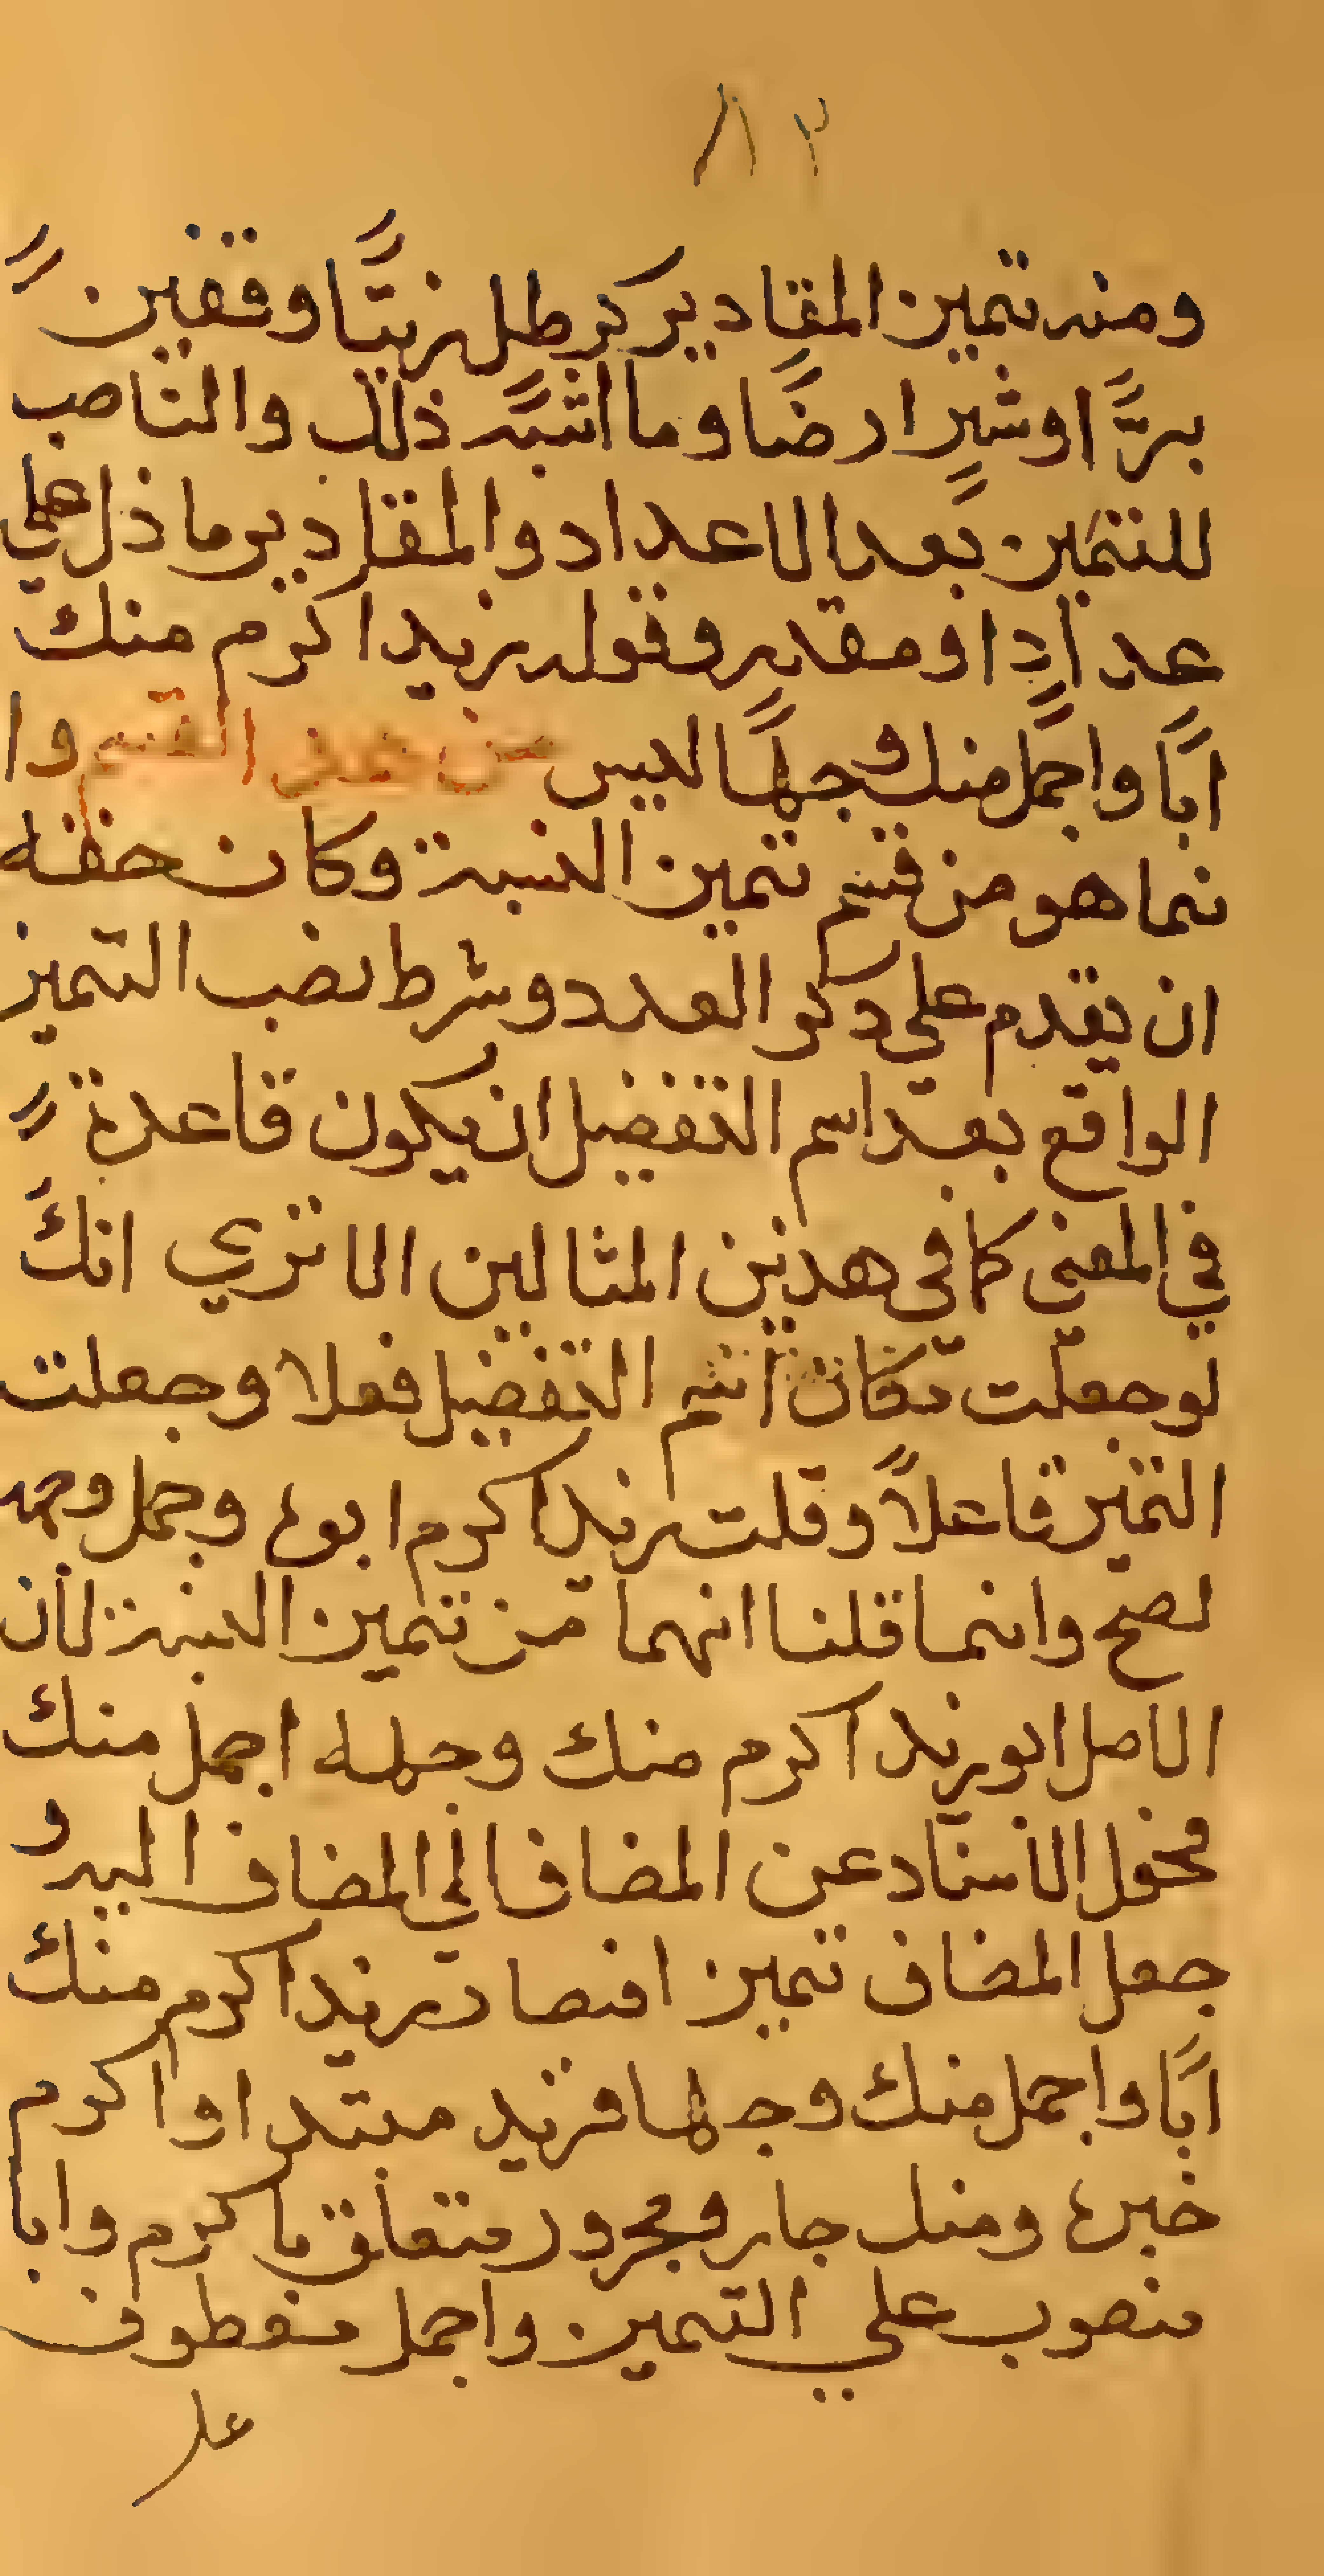 ٨٢
ومنه تمييز المقادير كرطل زيتًا وقفيز
برًّا او شبرٍ ارضًا وما اشبه ذلك والناصب
للتمييز بعد الاعداد والمقادير ما دل علي
عدادا ومقدر وقوله زيد اكرم منك
ابًا واجمل منك وجهًا ليس من هذا القسم وا
نما هو من قسم تمييز النسبة وكان حقه
ان يقدم علي ذكر العدد وشرط نصب التمييز
الواقع بعد اسم التفضيل ان يكون فاعلاً
في المعنى كما في هذين المثالين الا تري انك
لو جعلت مكان اسم التفضيل فعلا وجعلت
التمييز فاعلاً وقلت زيد اكرم ابوه وجمل وجهه
لصح وانما قلنا انهما من تمييز النسبة لأن
الاصل ابو زيد اكرم منك وجهه اجمل منك
فحول الأسناد عن المضاف الي المضاف اليه و
جعل المضاف تمييز افصار زيد اكرم منك
ابًا واجمل منك وجها فزيد مبتدا واكرم
خبره ومنك جار ومجرور متعلق باكرم وابا
منصوب علي التمييز واجمل معطوف
علي